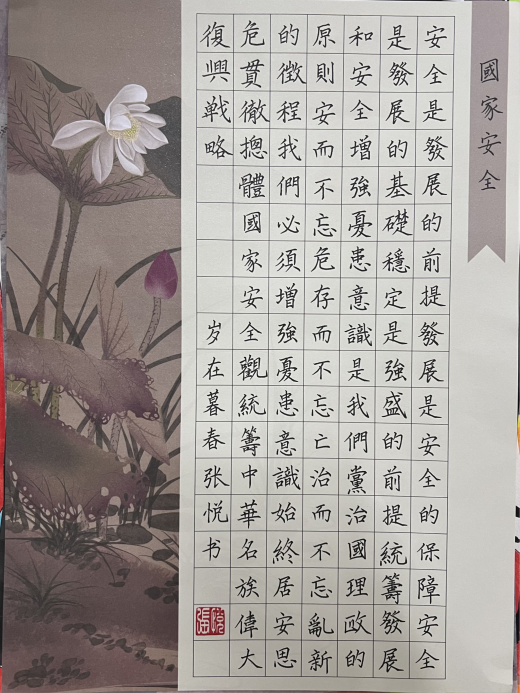 國家安全
安全是發展的前提發展是安全的保障安全
是發展的基礎穩定是強盛的前提統籌發展
和安全增強憂患意識是我們黨治國理政的
原則安而不忘危存而不忘亡治而不忘亂新
的徵程我們必須增強憂患意識始終居安思
危貫徹摠體國家安全觀統籌中華名族偉大
復興戦略
岁在暮春张悦书